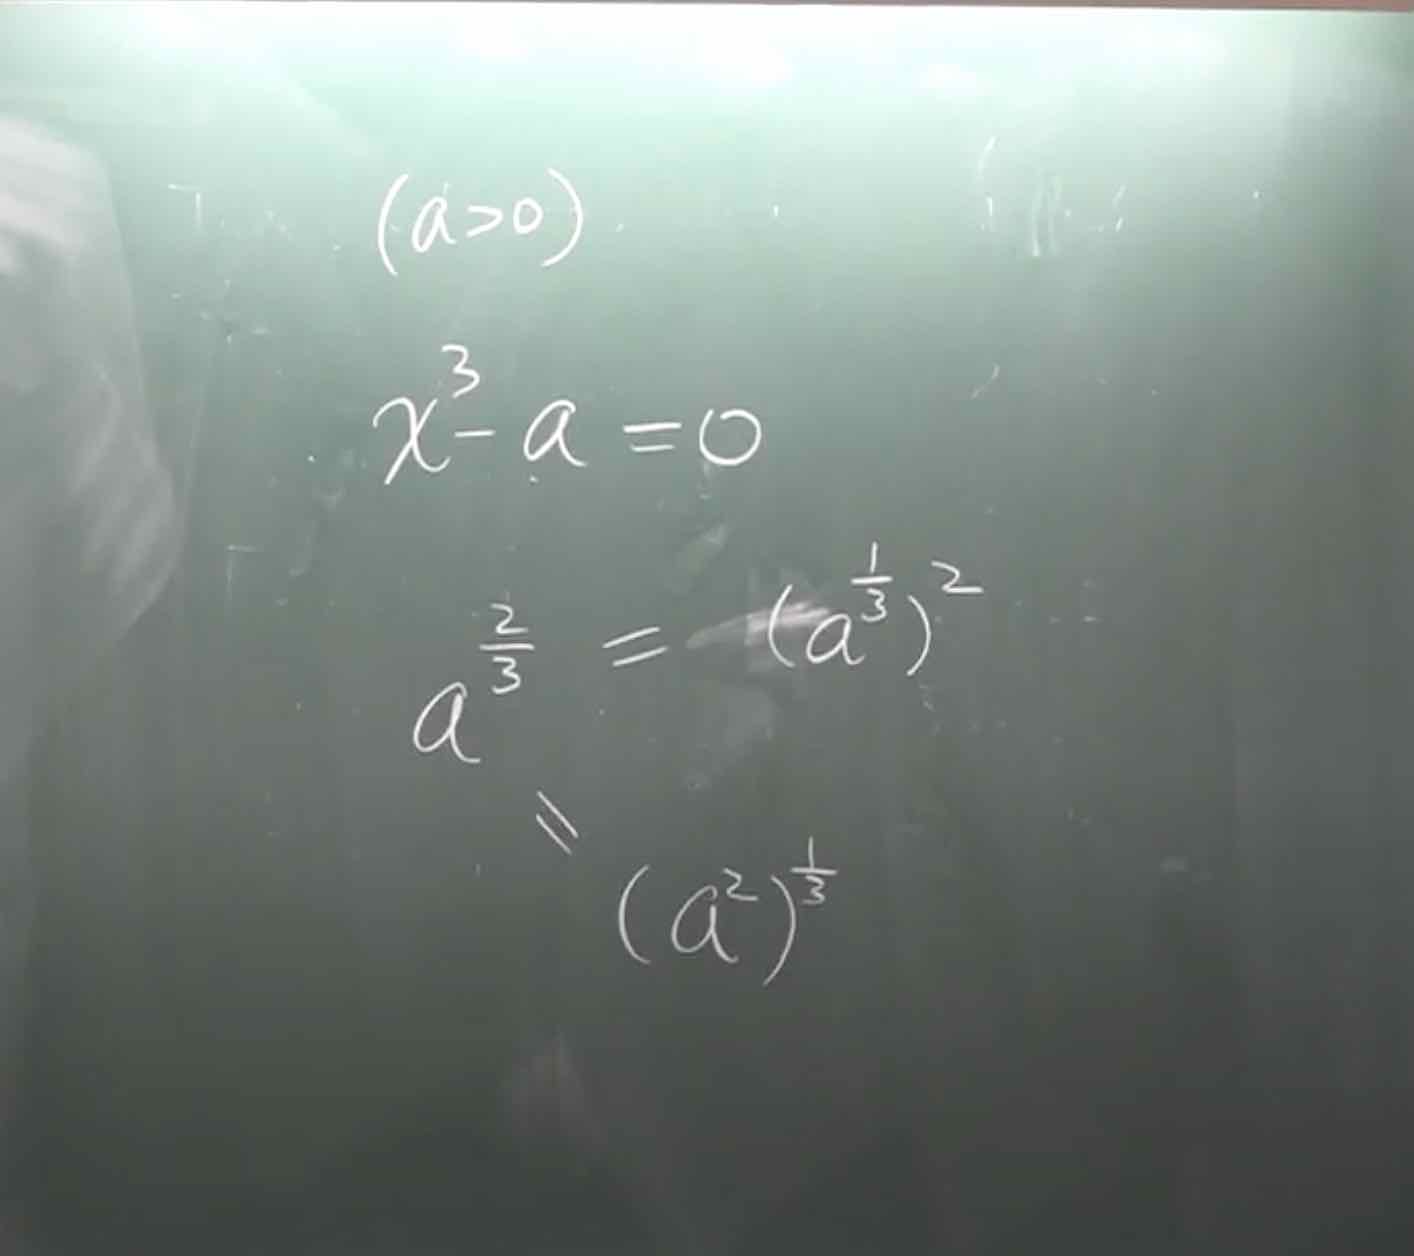 (a>0)
x³-a=0
a^{\frac{2}{3}} = (a^{\frac{1}{3}})²
=
(a²)^{\frac{1}{3}}